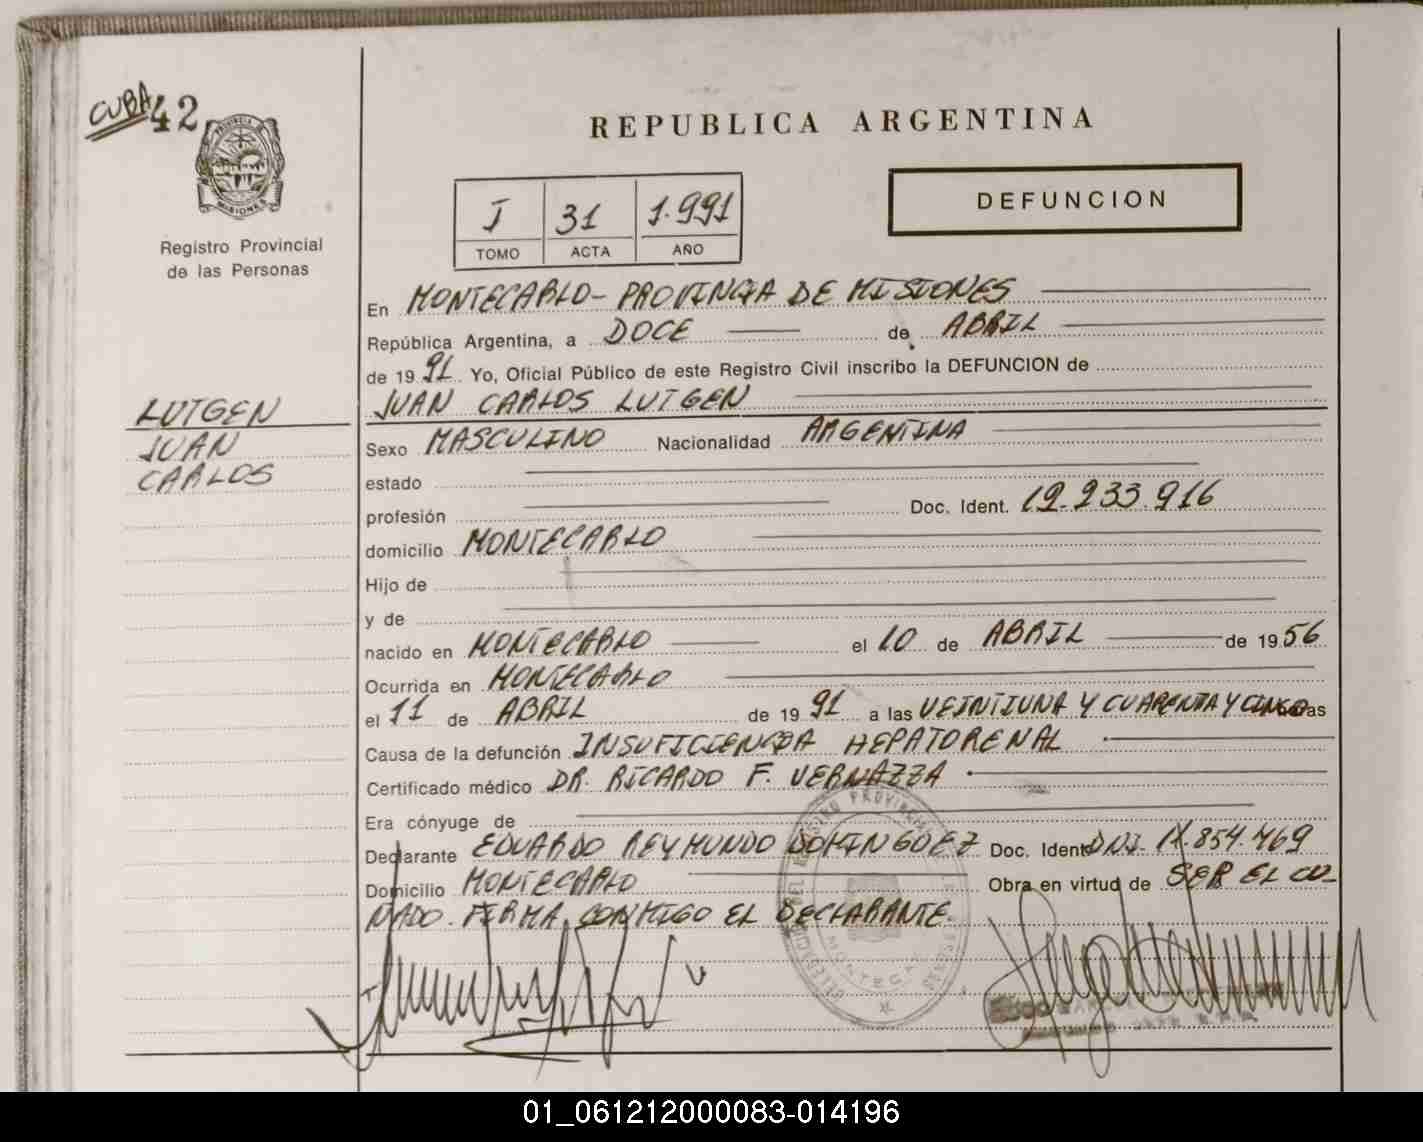 CUBA 42
PROVINCIA DE
MISIONES
Registro Provincial
de las Personas
REPUBLICA ARGENTINA
DEFUNCION
I 31 1.991
TOMO ACTA AÑO
En MONTECARLO - PROVINCIA DE MISIONES
República Argentina, a DOCE de ABRIL
de 1991 Yo, Oficial Público de este Registro Civil inscribo la DEFUNCION de
JUAN CARLOS LUTGEN
LUTGEN
JUAN
CARLOS
Sexo MASCULINO Nacionalidad ARGENTINA
estado
profesión Doc. Ident. 12.233.916
domicilio MONTECARLO
Hijo de
y de
nacido en MONTECARLO el 10 de ABRIL de 1956
Ocurrida en MONTECARLO
el 11 de ABRIL de 1991 a las VEINTIUNA Y CUARENTA Y CINCO horas
Causa de la defunción INSUFICIENCIA HEPATORENAL
Certificado médico DR. RICARDO F. VERNAZZA
Era cónyuge de
Declarante EDUARDO REYMUNDO DOMINGUEZ Doc. Ident DNI. 11.854.469
Domicilio MONTECARLO Obra en virtud de SER EL CU-
ÑADO. FIRMA CONMIGO EL DECLARANTE.
01_061212000083-014196